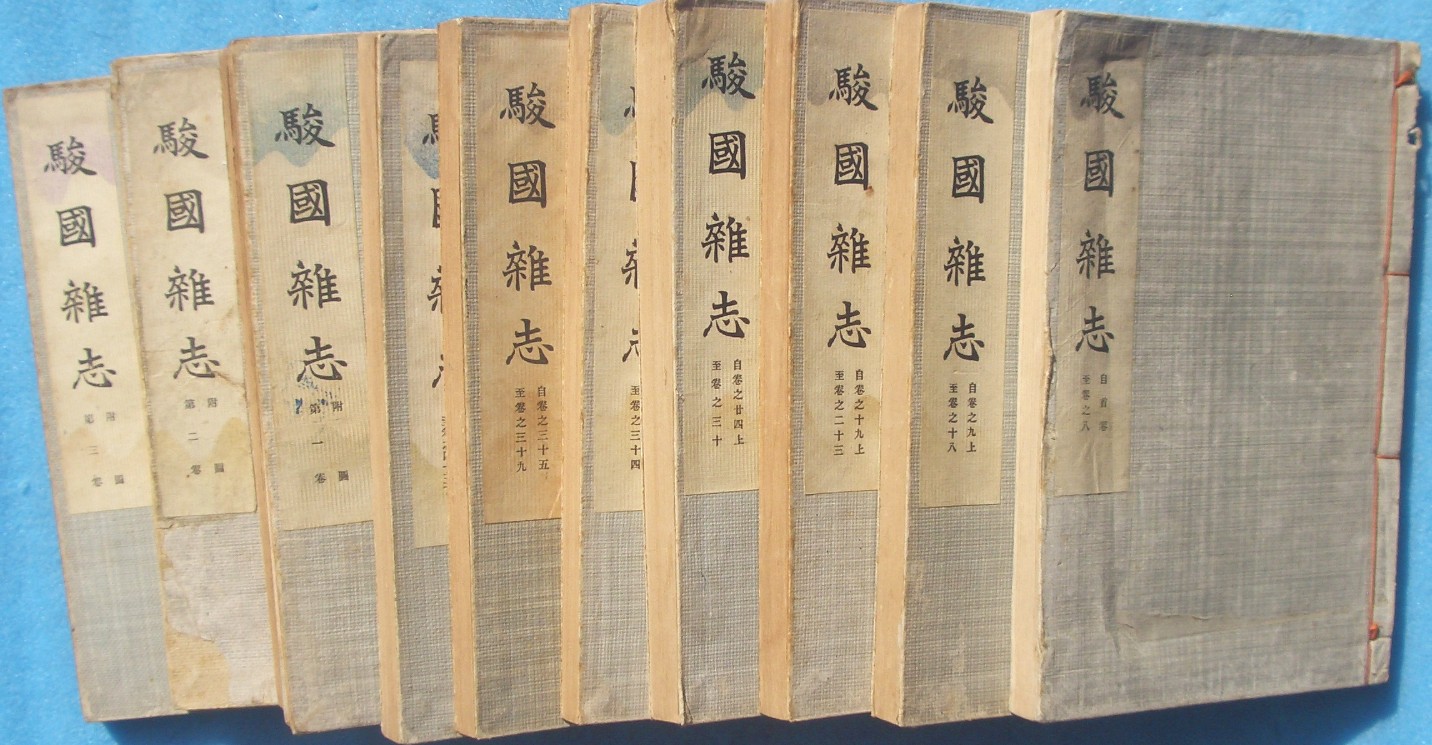 駿國雜志
自首卷
至卷之八
駿國雜志
自卷之九上
至卷之十八
駿國雜志
自卷之十九上
至卷之二十三
駿國雜志
自卷之廿四上
至卷之三十
至卷之三十四
駿國雜志
自卷之三十五
至卷之三十九
駿國雜志
附圖
第一卷
駿國雜志
附圖
第二卷
駿國雜志
附圖
第三卷